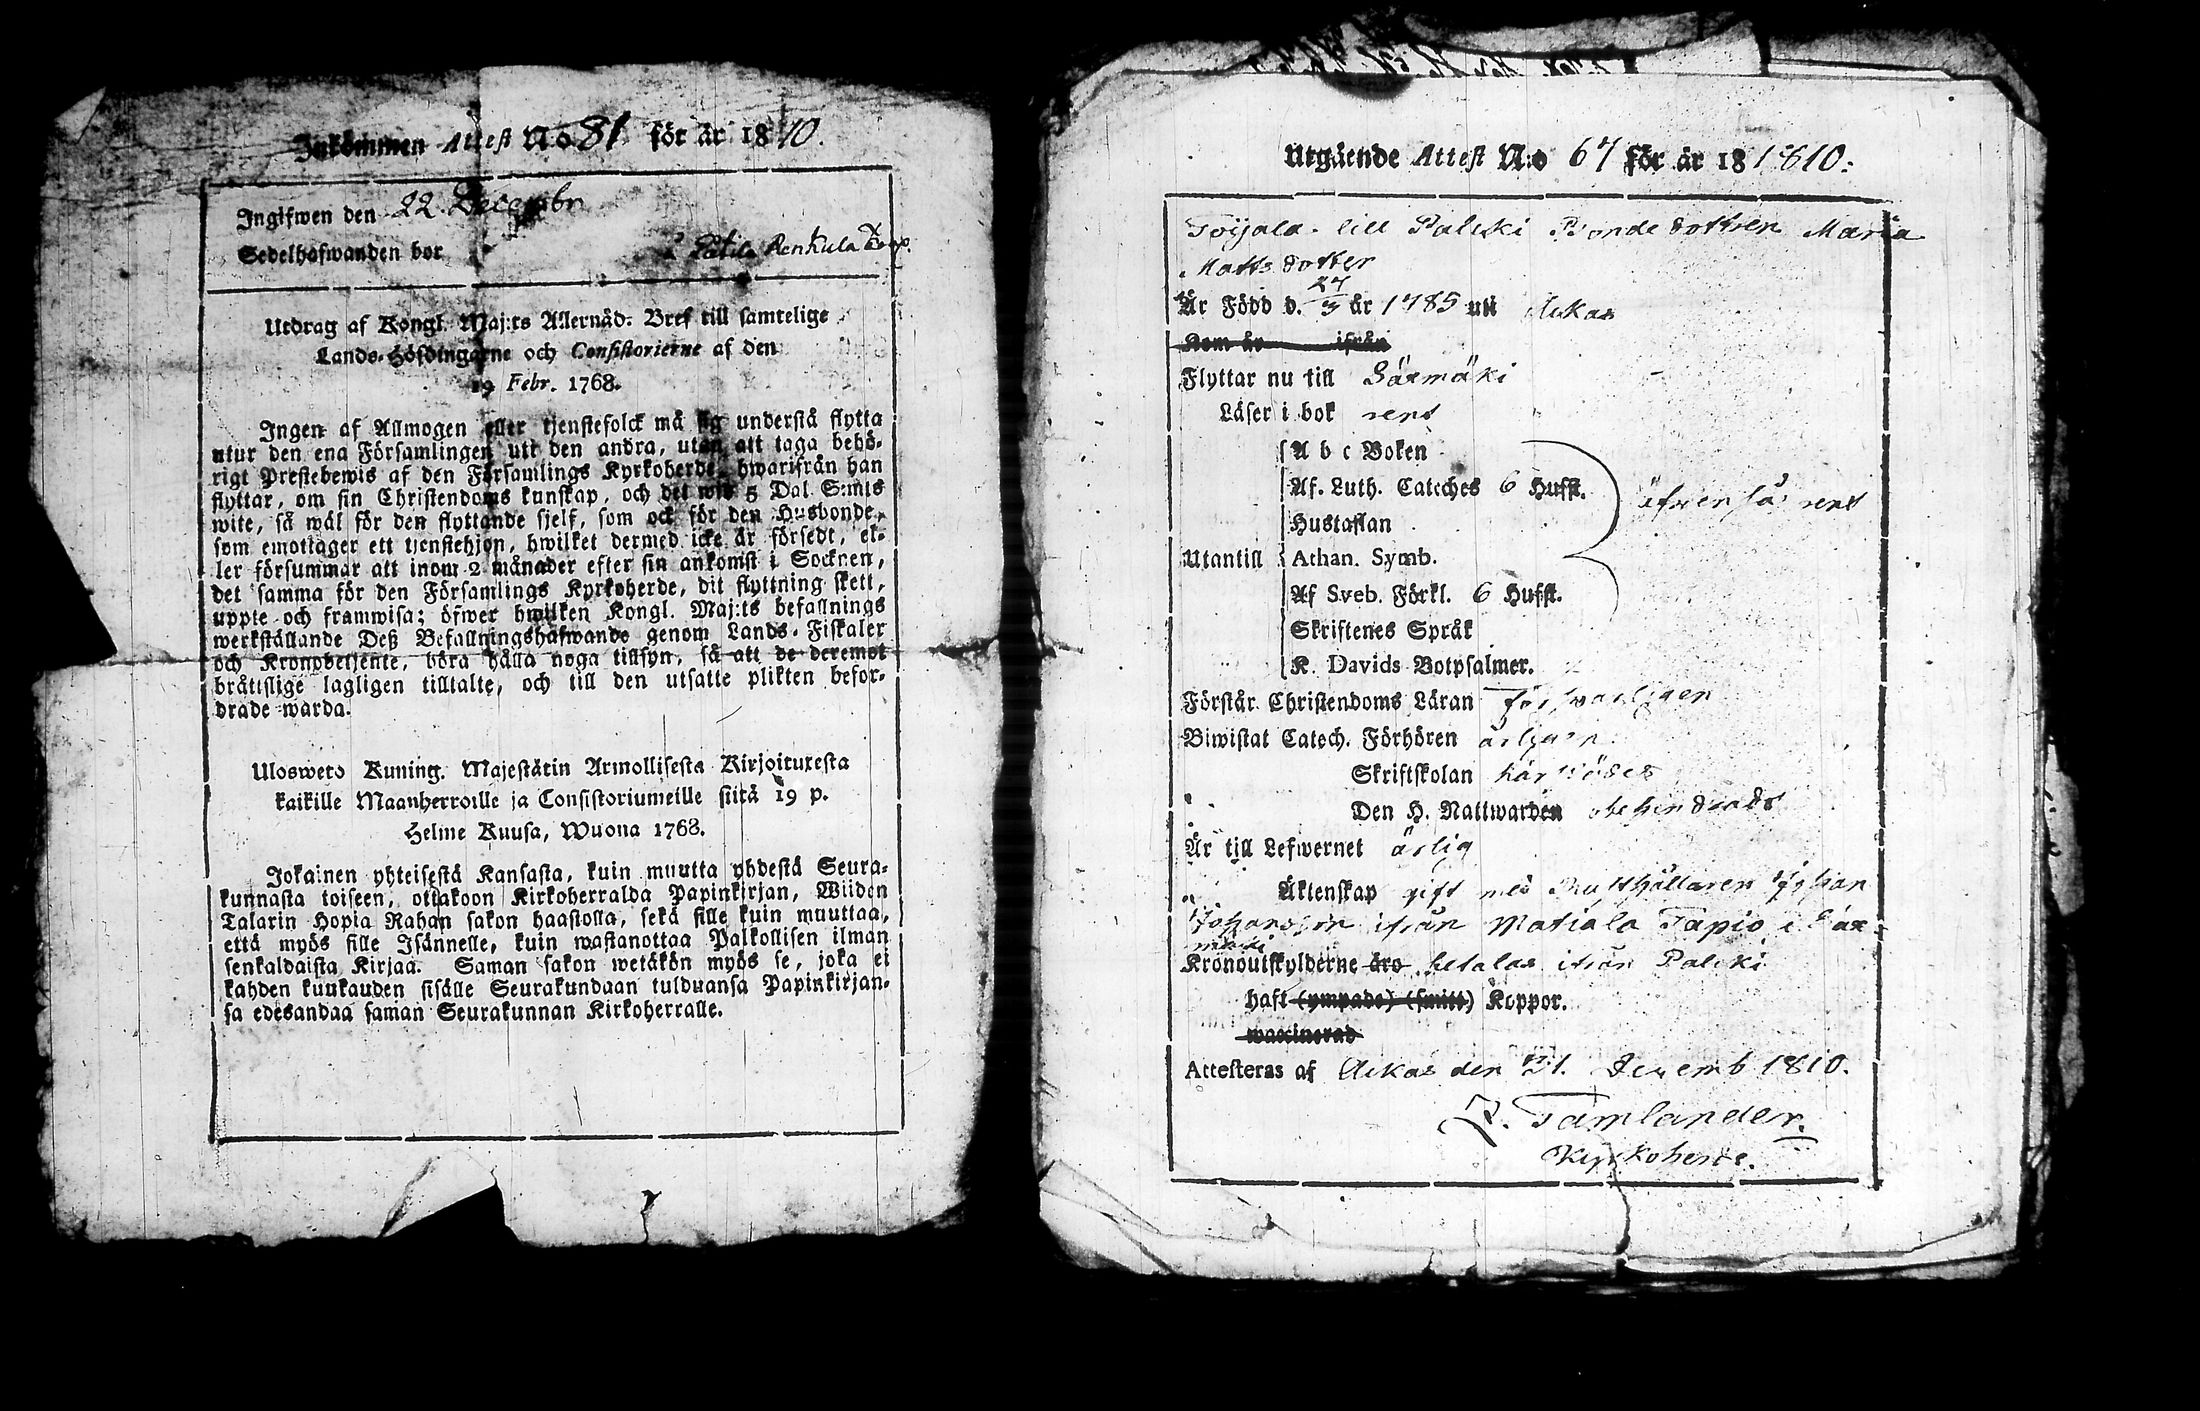 Inkommen Attest No 81 för år 1810.
Ingifwen den 22 Decembr
Sedelhafwanden bor å Lätilä Renkula
Utdrag af Kongl. Maj:ts Allernåd: Bref till samtelige
Lands-Höfdingarne och Consistorierne af den
19 Febr. 1768.
Ingen af Allmogen eller tjenstefolck må sig understå flytta
utur den ena Församlingen uti den andra, utan att taga behö-
rigt Prestebewis af den Församlings Kyrkoherde, hwarifrån han
flyttar, om sin Christendoms kunskap, och det wid 5 Dal. S:mts
wite, så wäl för den flyttande sjelf, som ock för den Husbonde,
som emottager ett tjenstehjon, hwilket dermed icke är försedt, el-
ler försummar att inom 2 månader efter sin ankomst i Socknen,
det samma för den Församlings Kyrkoherde, dit flyttning skett,
uppte och framwisa; öfwer hwilken Kongl. Maj:ts befallnings
werkställande Deß Befallningshafwande genom Lands-Fiskaler
och Kronobetjente, böra hålla noga tillsyn, så att de deremot
bråttslige lagligen tilltalte, och till den utsatte plikten befor-
drade warda.
Uloswero Kuning. Majestätin Armollisesta Kirjoituxesta
kaikille Maanherroille ja Consistoriumeille siitä 19 p.
Helme Kuusa, Wuona 1768.
Jokainen yhteisestä Kansasta, kuin muutta yhdestä Seura-
kunnasta toiseen, ottakoon Kirkoherralda Papinkirjan, Wiiden
Talarin Hopia Rahan sakon haastolla, sekä sille kuin muuttaa,
että myös sille Isännelle, kuin wastanottaa Palkollisen ilman
senkaldaista Kirjaa. Saman sakon wetäkön myös se, joka ei
kahden kuukauden sisälle Seurakundaan tulduansa Papinkirjan-
sa edesandaa saman Seurakunnan Kirkoherralle.
Utgående Attest N:o 67 för år 181810.
Toijala till Palski Bonde dottren Maria
Matts dotter
Är Född d. 27/3 år 1785 uti Ackas
Kom år ifrån
Flyttar nu till Säxmäki
Läser i bok rent
A b c Boken
Af. Luth. Cateches 6 Hufst. äfwen så rent
Hustaflan
Utantill Athan. Symb.
Af Sveb. Förkl. 6 Hufst.
Skriftenes Språk
K. Davids Botpsalmer.
Förstår Christendoms Läran förswarligen
Biwistat Catech. Förhören årligen
Skriftskolan härstädes
Den H. Nattwarden obehindradt
Är till Lefwernet ärlig
Äktenskap gift med Rusthållaren Johan
Johansson ifrån Matiala Tapio i Säx-
mäki
Kronoutskylderne äro betalas ifrån Palski
haft (ympade) (smitt) Koppor.
waccinerad
Attesteras af Ackas den 31. Decemb 1810.
Z. Tamlander.
Kyrkoherde.